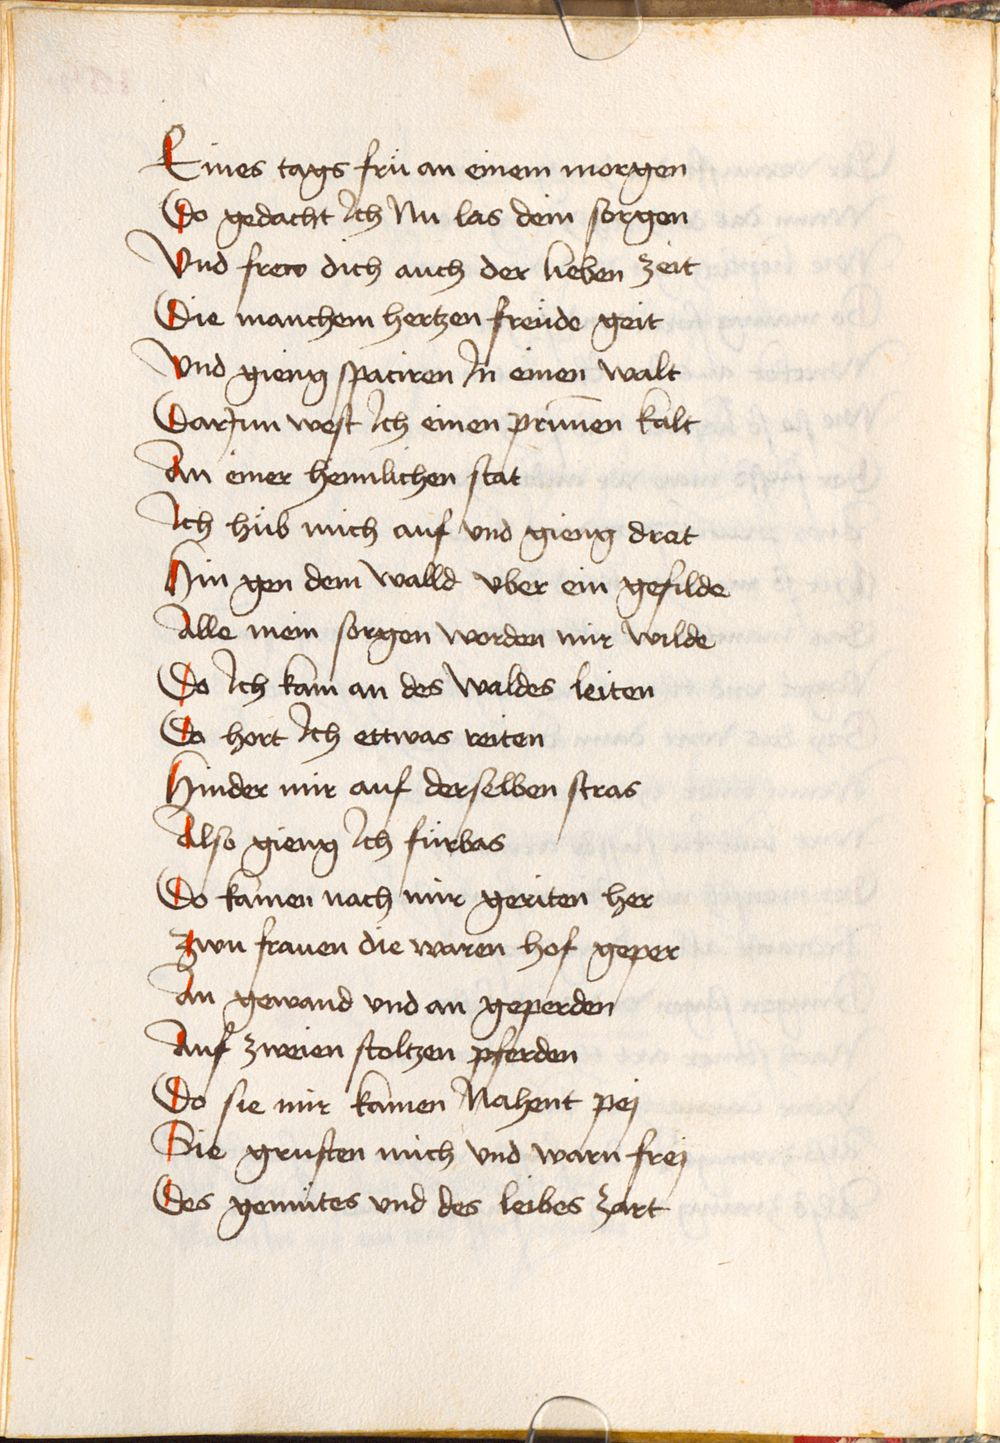 Eines tags frü an einem morgen
Do gedacht Ich Nu las dein sorgen
Vnd frew dich auch der lieben zeit
Die manchem hertzen freüde geit
Vnd gieng spaciren In einen walt
Darjnn west Ich einen prunnen kalt
An einer heimlichen stat
Ich hüb mich auf vnd gieng drat
Hin gen dem walld vber ein gefilde
Alle mein sorgen worden mir wilde
Do Ich kam an des waldes leiten
Do hort Ich ettwas reiten
Hinder mir auf derselben stras
Also gieng Ich fürbas
Do kamen nach mir geriten her
Zwu frauen die waren hof geper
An gewand vnd an geperden
Auf zweien stoltzen pferden
Do sie mir kamen Nahent pej
Sie grusten mich vnd warn frej
Des gemütes vnd des leibes zart